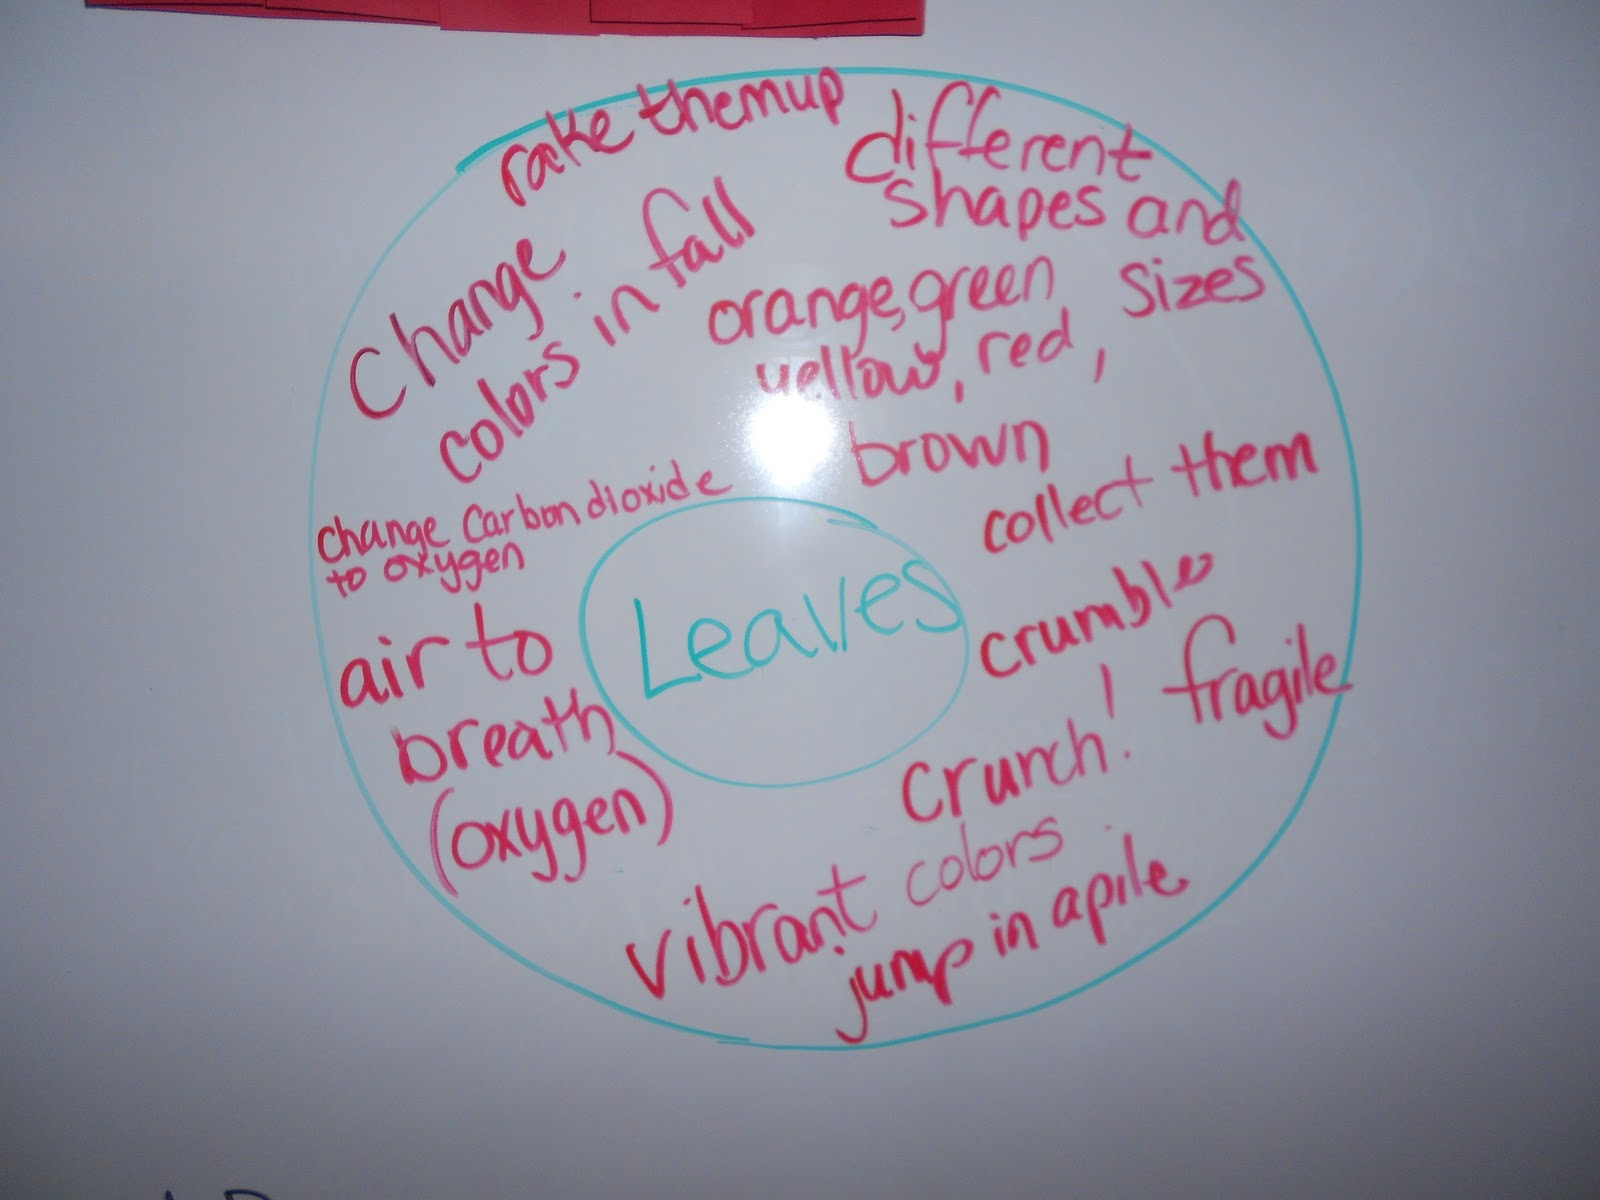 rake them up
different
shapes and
sizes
Change
colors in fall
orange, green
yellow, red,
brown
change carbon dioxide
to oxygen
collect them
Leaves
crumble
air to
breath
(oxygen)
fragile
Crunch!
vibrant colors
jump in a pile